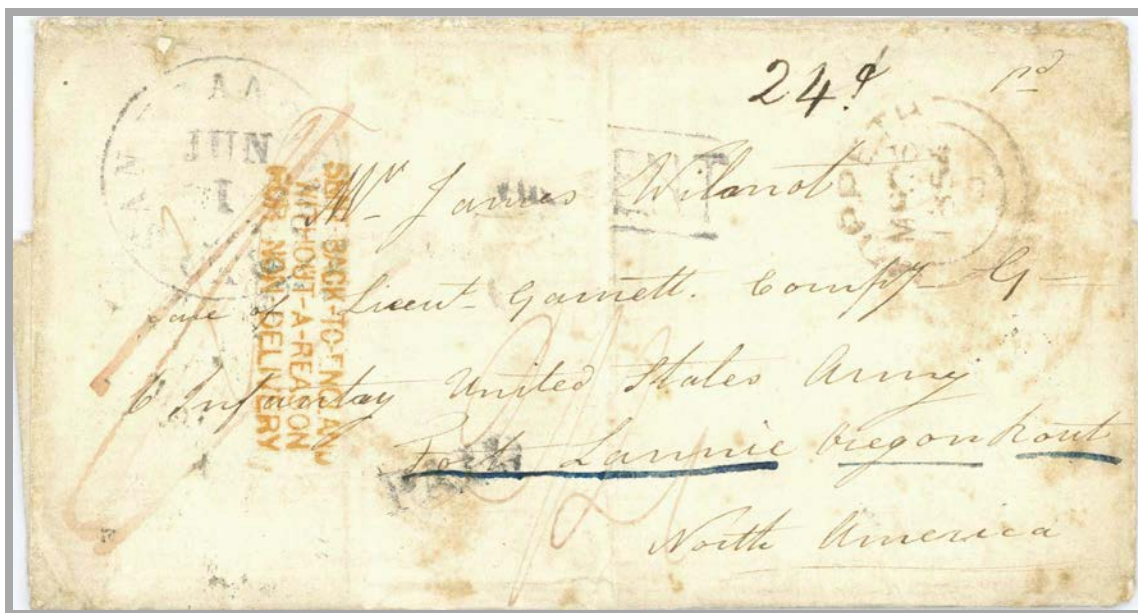 24¢ pd
JUN
1
SENT BACK-TO-ENGLAN
WITHOUT-A-REASON
FOR NON-DELIVERY
Mr James Wilmot
Care of Lieut Garnett. Compy G
6 Infantry United States Army
Fort Lannie Oregon Rout
North America
PAID